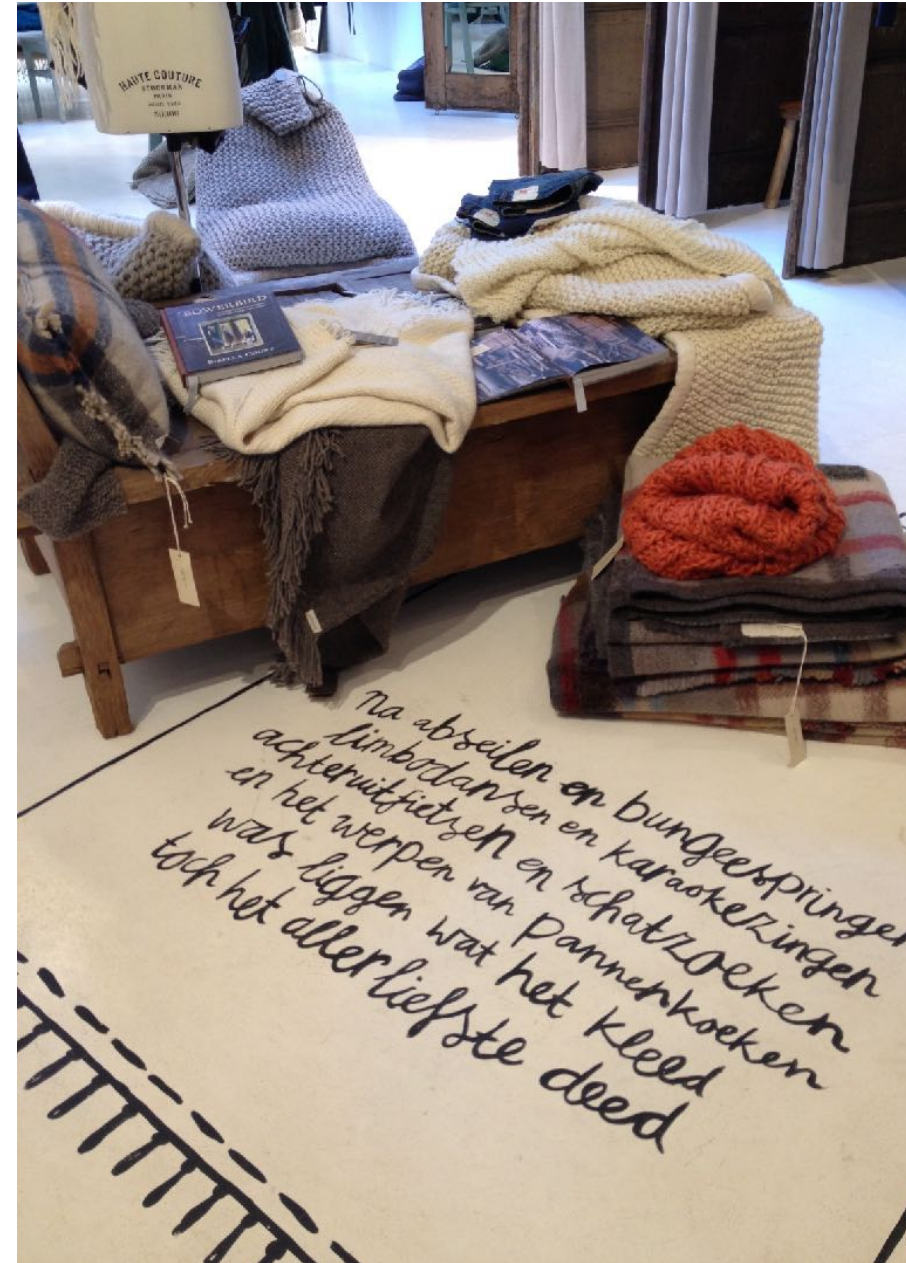 HAUTE COUTURE
PARIS
BOWERBIRD
Na abseilen en bungeespringen
limbodansen en karaokezingen
achteruitfietsen en schatzoeken
en het werpen van pannenkoeken
was liggen wat het kleed
toch het allerliefste deed